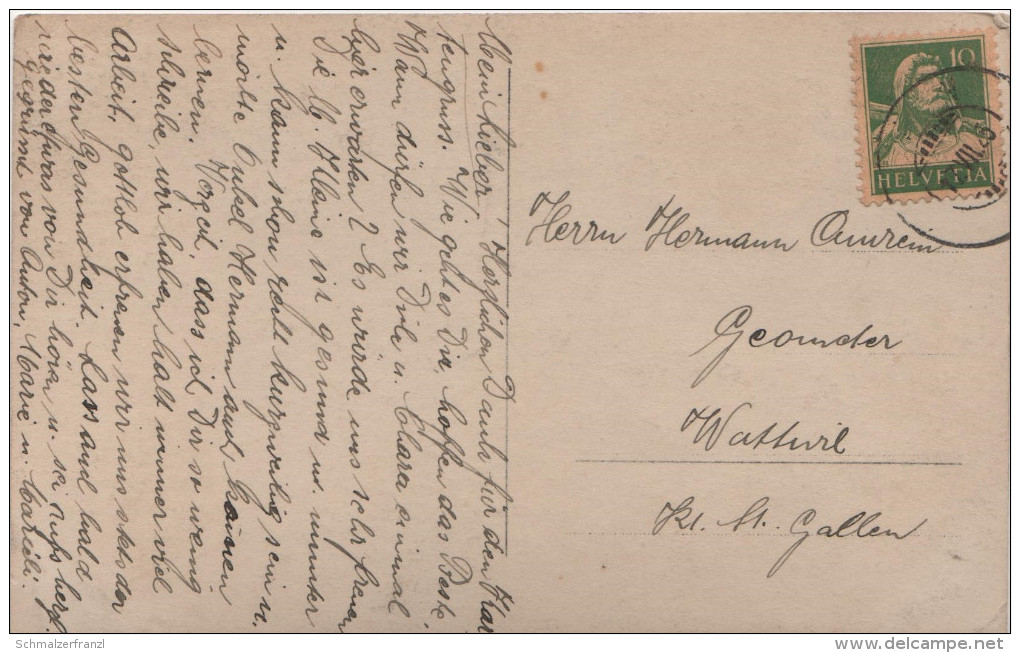 Mein lieber! Herzlichen Dank für den Kar
tengruss. Wie geht es Dir, hoffen das Beste.
Wann dürfen wir Dich u. Clara einmal
hier erwarten? Es würde uns sehr freuen
Die lb. Kleine ist gesund u. munter
u. kann schon recht kurzweilig sein u.
möchte Onkel Hermann auch kennen
lernen. Verzeih, dass ich Dir so wenig
schreibe, wir haben halt immer viel
Arbeit, gottlob erfreuen wir uns stets der
besten Gesundheit. Lass auch bald
wieder etwas von Dir hören u. sei aufs herzl.
gegrüsst von Anton, Marie u.
Herrn Hermann Amrein
Geometer
Wattwil
Kt. St. Gallen
10
HELVETIA
Schmalzerfranzl
www.delcampe.net